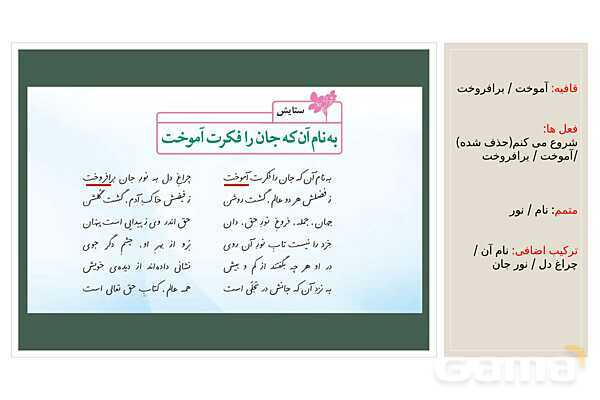 ستایش
به نام آن که جان را فکرت آموخت
به نام آن که جان را فکرت آموخت چراغ دل به نور جان برافروخت
ز فضلش هر دو عالم، گشت روشن ز فیضش خاک آدم، گشت گلشن
جهان، جمله، فروغ نور حق، دان حق اندر وی ز پیدایی است پنهان
خرد را نیست تاب نور آن روی برو از بهر او، چشم دگر جوی
در او هر چه بگفتند از کم و بیش نشانی داده‌اند از دیده‌ی خویش
به نزد آن که جانش در تجلّی است همه عالم، کتاب حق تعالی است
قافیه: آموخت / برافروخت
فعل ها:
شروع می کنم(حذف شده)
/آموخت / برافروخت
متمم: نام / نور
ترکیب اضافی: نام آن /
چراغ دل / نور جان
Gama